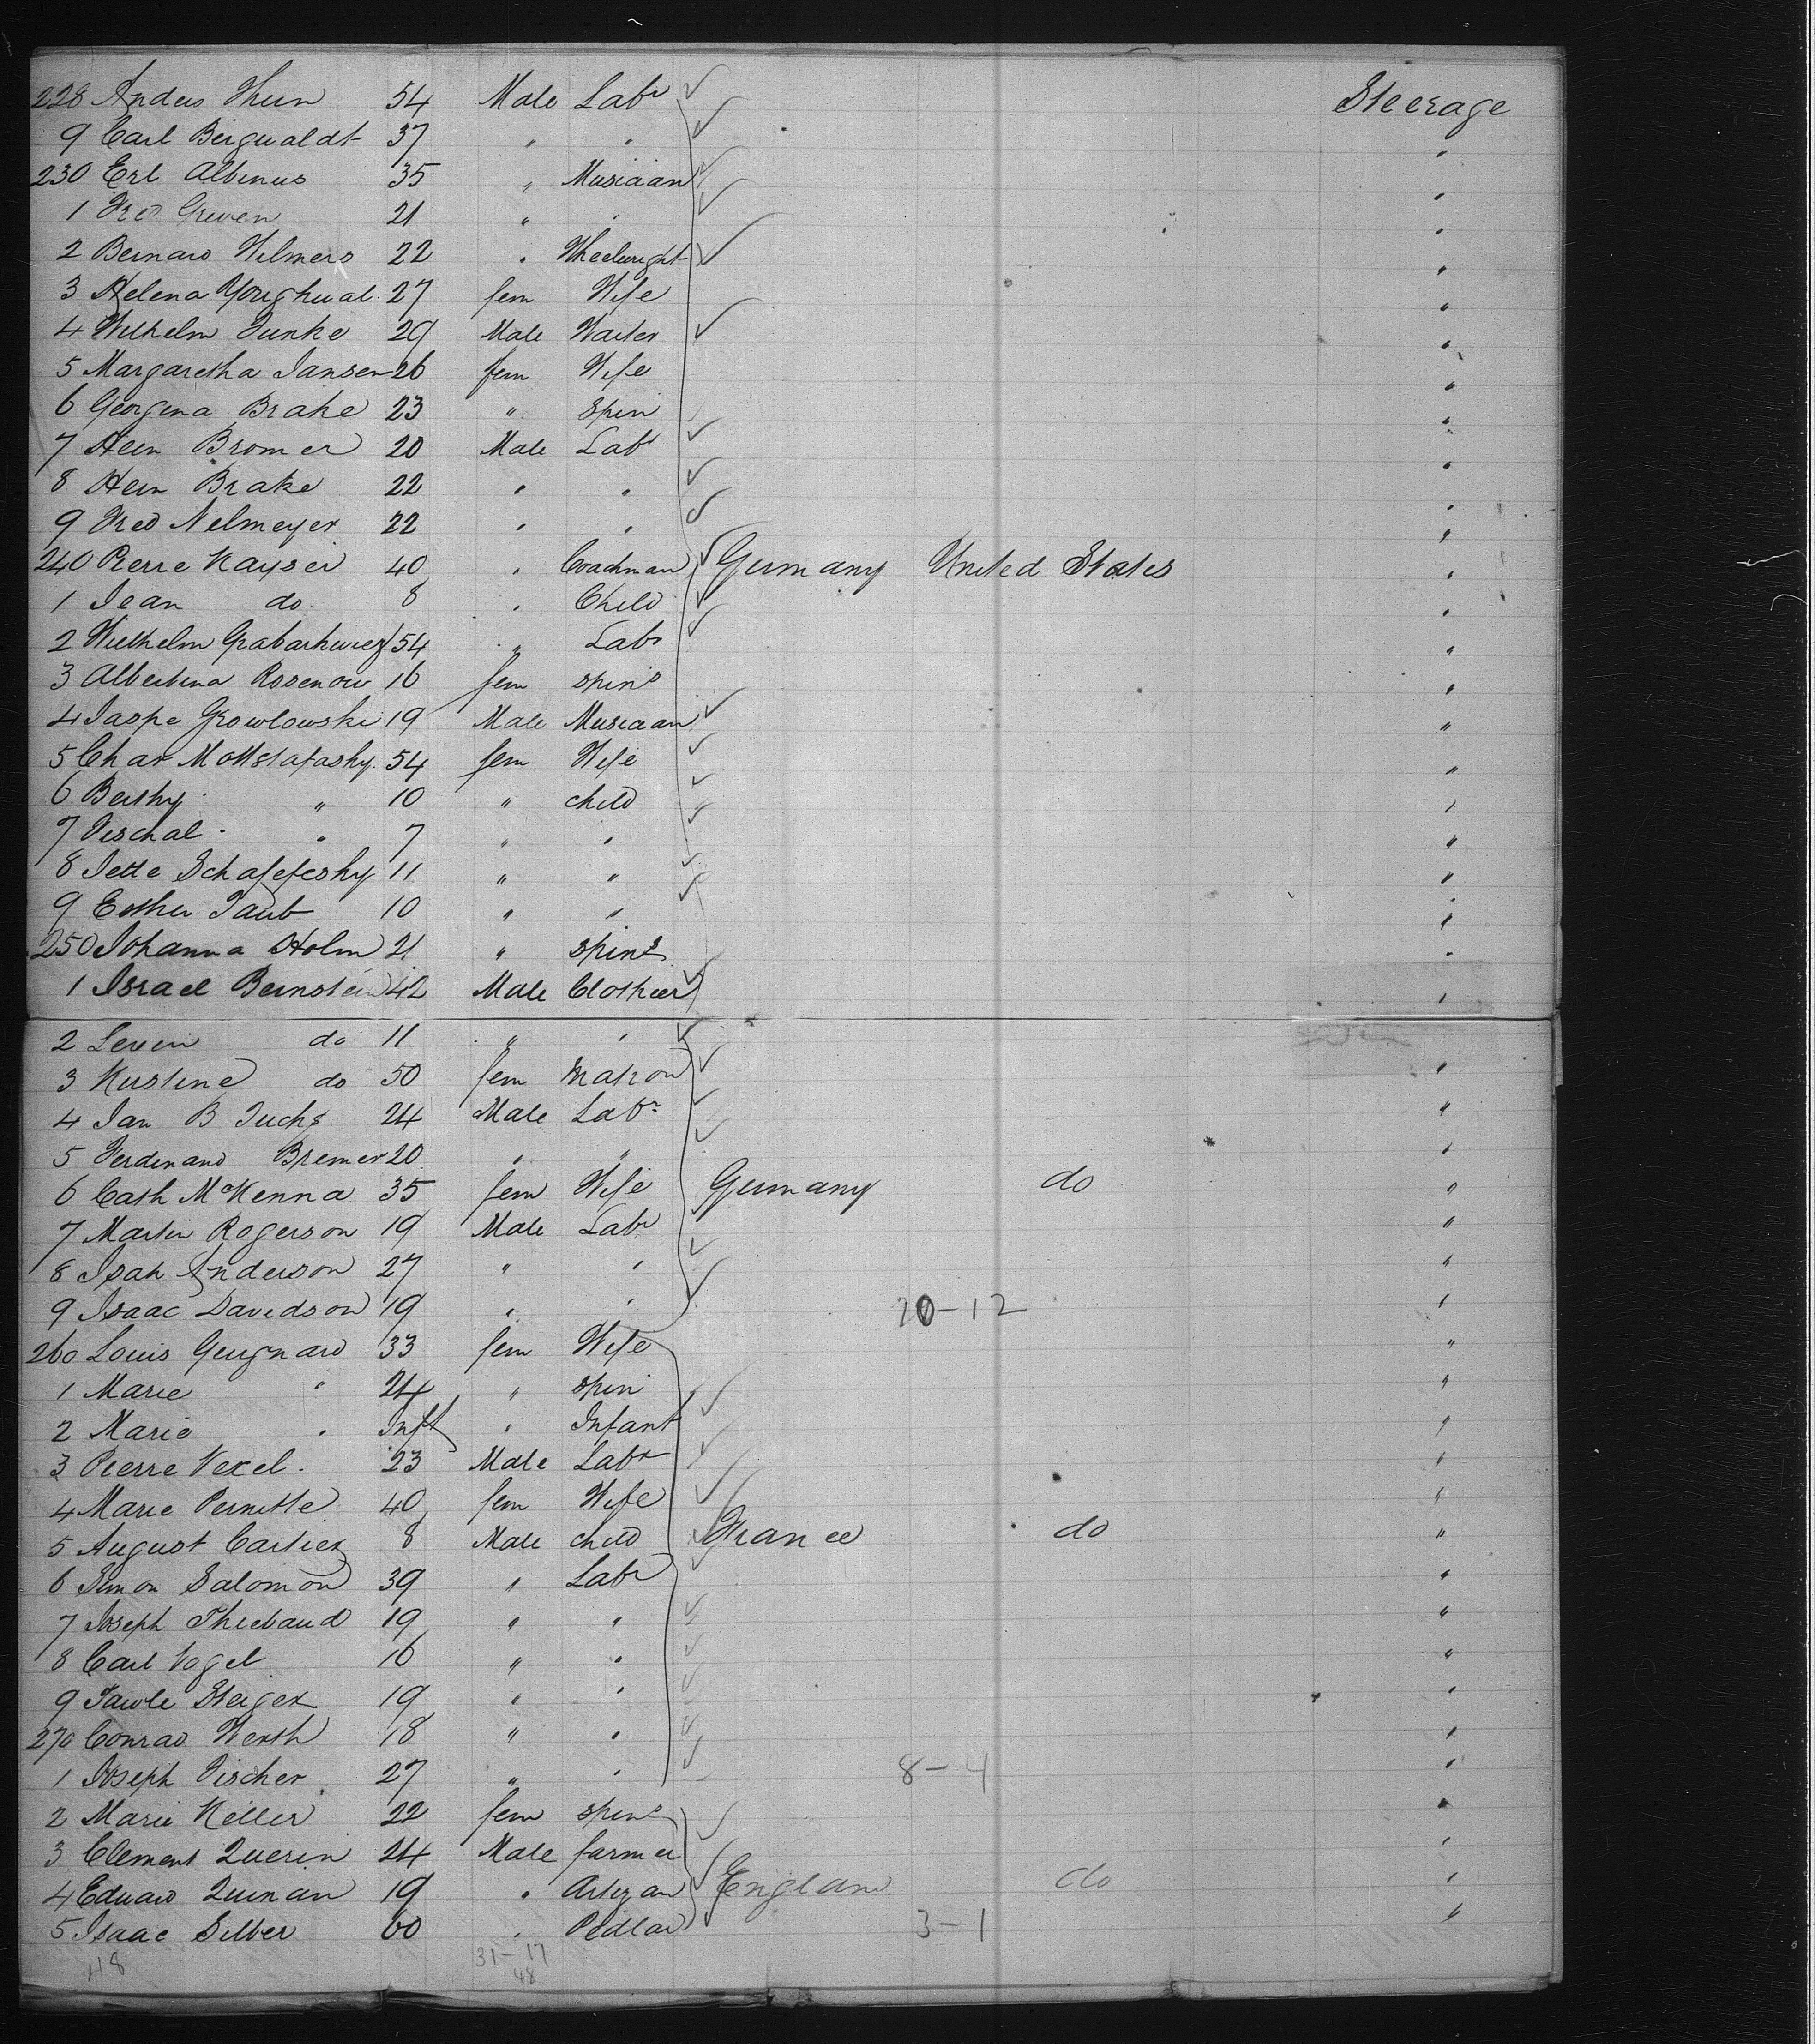 228 Anders Thun 54 Male Labr Steerage
9 Carl Bergwaldt 37 " " "
230 Erl Albinus 35 " Musician "
1 Fred Greven 21 " " "
2 Bernard Wilmers 22 " Wheelwright "
3 Helena Yourghwal. 27 fem Wife "
4 Wilhelm Funke 29 Male Waiter "
5 Margaretha Jansen 26 fem Wife "
6 Georgina Brake 23 " Spin "
7 Hein Bromer 20 Male Labr "
8 Hein Brake 22 " " "
9 Fred Nelmeyer 22 " " "
240 Pierre Kayser 40 " Coachman Germany United States "
1 Jean do 8 " Child "
2 Wilhelm Grabarkwicz 54 " Labr "
3 Albertina Rosenow 16 fem spins "
4 Jaspe Growlowski 19 Male Musician "
5 Char Mottstafashy. 54 fem Wife "
6 Beithy " 10 " child "
7 Fischal " 7 " " "
8 Jette Schaffeshy 11 " " "
9 Esther Taub 10 " " "
250 Johanna Holm 21 " spins "
1 Israel Bernstein 42 Male Clothier "
2 Levin do 11 " "
3 Kirstine do 50 fem Matron "
4 Jan B Fuchs 24 Male Labr "
5 Ferdinand Bremer 20 " " "
6 Cath McKenna 35 fem Wife Germany do "
7 Martin Rogerson 19 Male Labr "
8 Isak Anderson 27 " " "
9 Isaac Davidson 19 " " 20-12 "
260 Louis Geugnard 33 fem Wife "
1 Marie " 24 " spin "
2 Marie " Inft " Infant "
3 Pierre Vexel. 23 Male Labr "
4 Marie Pernette 40 fem Wife "
5 August Cartier 8 Male child France do "
6 Simon Salomon 39 " Labr "
7 Joseph Thiebaud 19 " " "
8 Carl Vogel 16 " " "
9 Fawle Steiger 19 " " "
270 Conrad Werth 18 " " "
1 Joseph Fischer 27 " " 8-4 "
2 Marie Keller 22 fem spins "
3 Clement Querin 24 Male farmer "
4 Edward Quinan 19 " Artizan England do "
5 Isaac Silber 60 " Pedlar 3-1 "
48 31-17
48